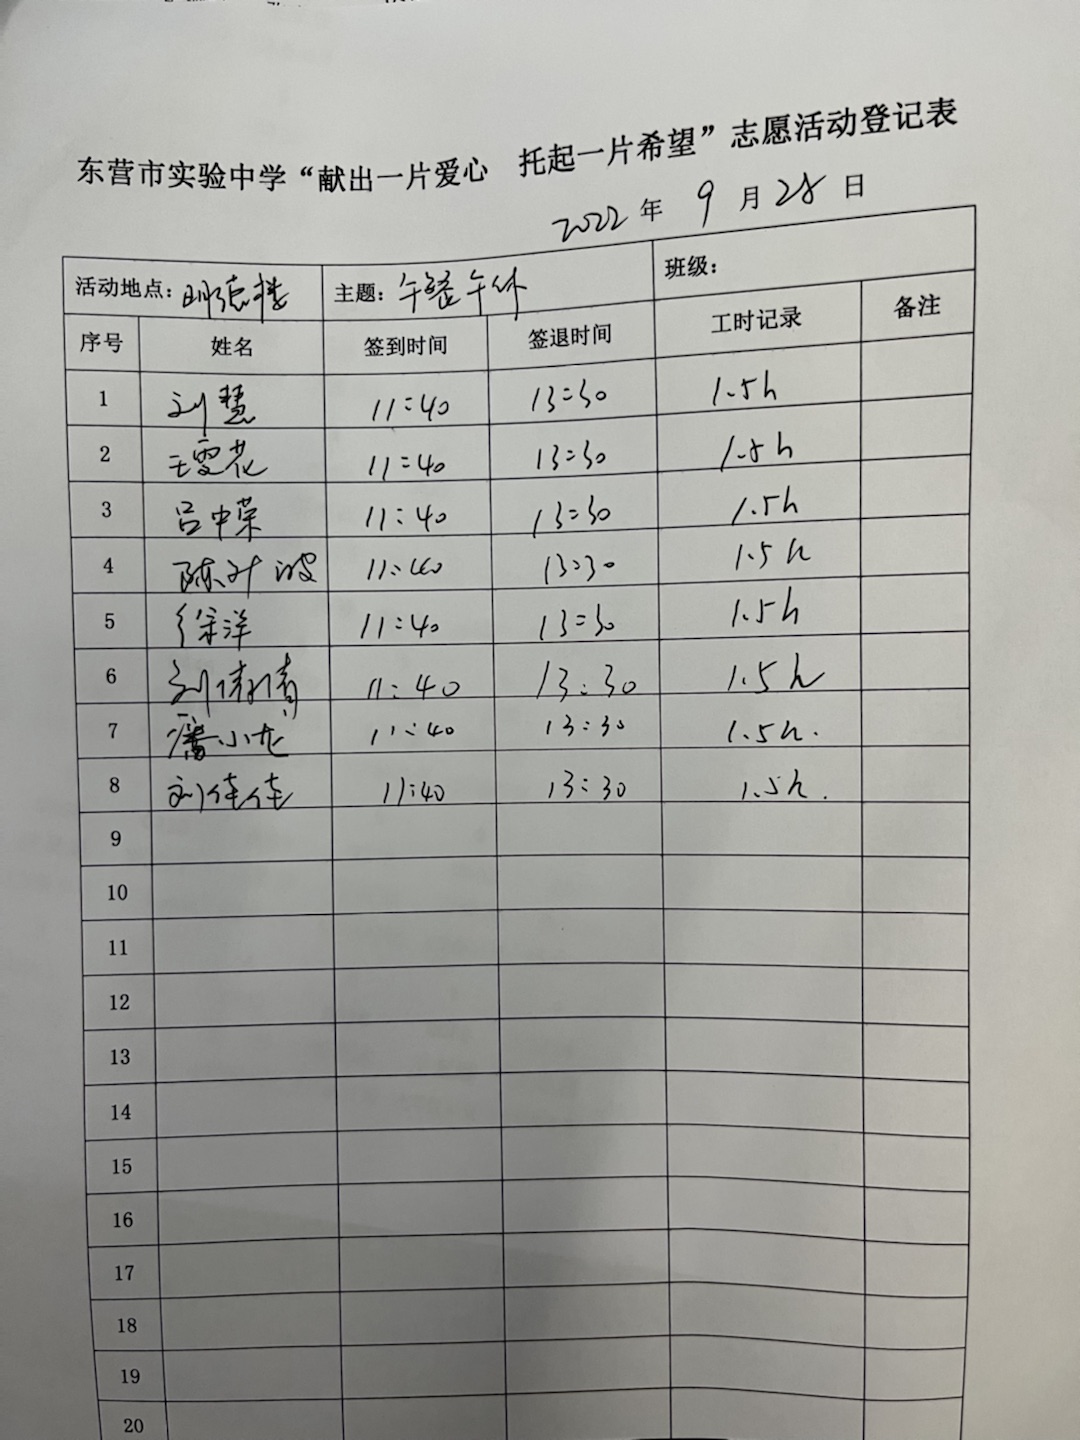 东营市实验中学“献出一片爱心 托起一片希望”志愿活动登记表
2022年 9月28日
活动地点：明德楼 主题：午餐午休 班级：
序号 姓名 签到时间 签退时间 工时记录 备注
1 刘慧 11:40 13:30 1.5h
2 王雪花 11:40 13:30 1.5h
3 吕中荣 11:40 13:30 1.5h
4 陈叶波 11:40 13:30 1.5h
5 徐洋 11:40 13:30 1.5h
6 刘倩倩 11:40 13:30 1.5h
7 潘小龙 11:40 13:30 1.5h.
8 刘佳佳 11:40 13:30 1.5h.
9
10
11
12
13
14
15
16
17
18
19
20